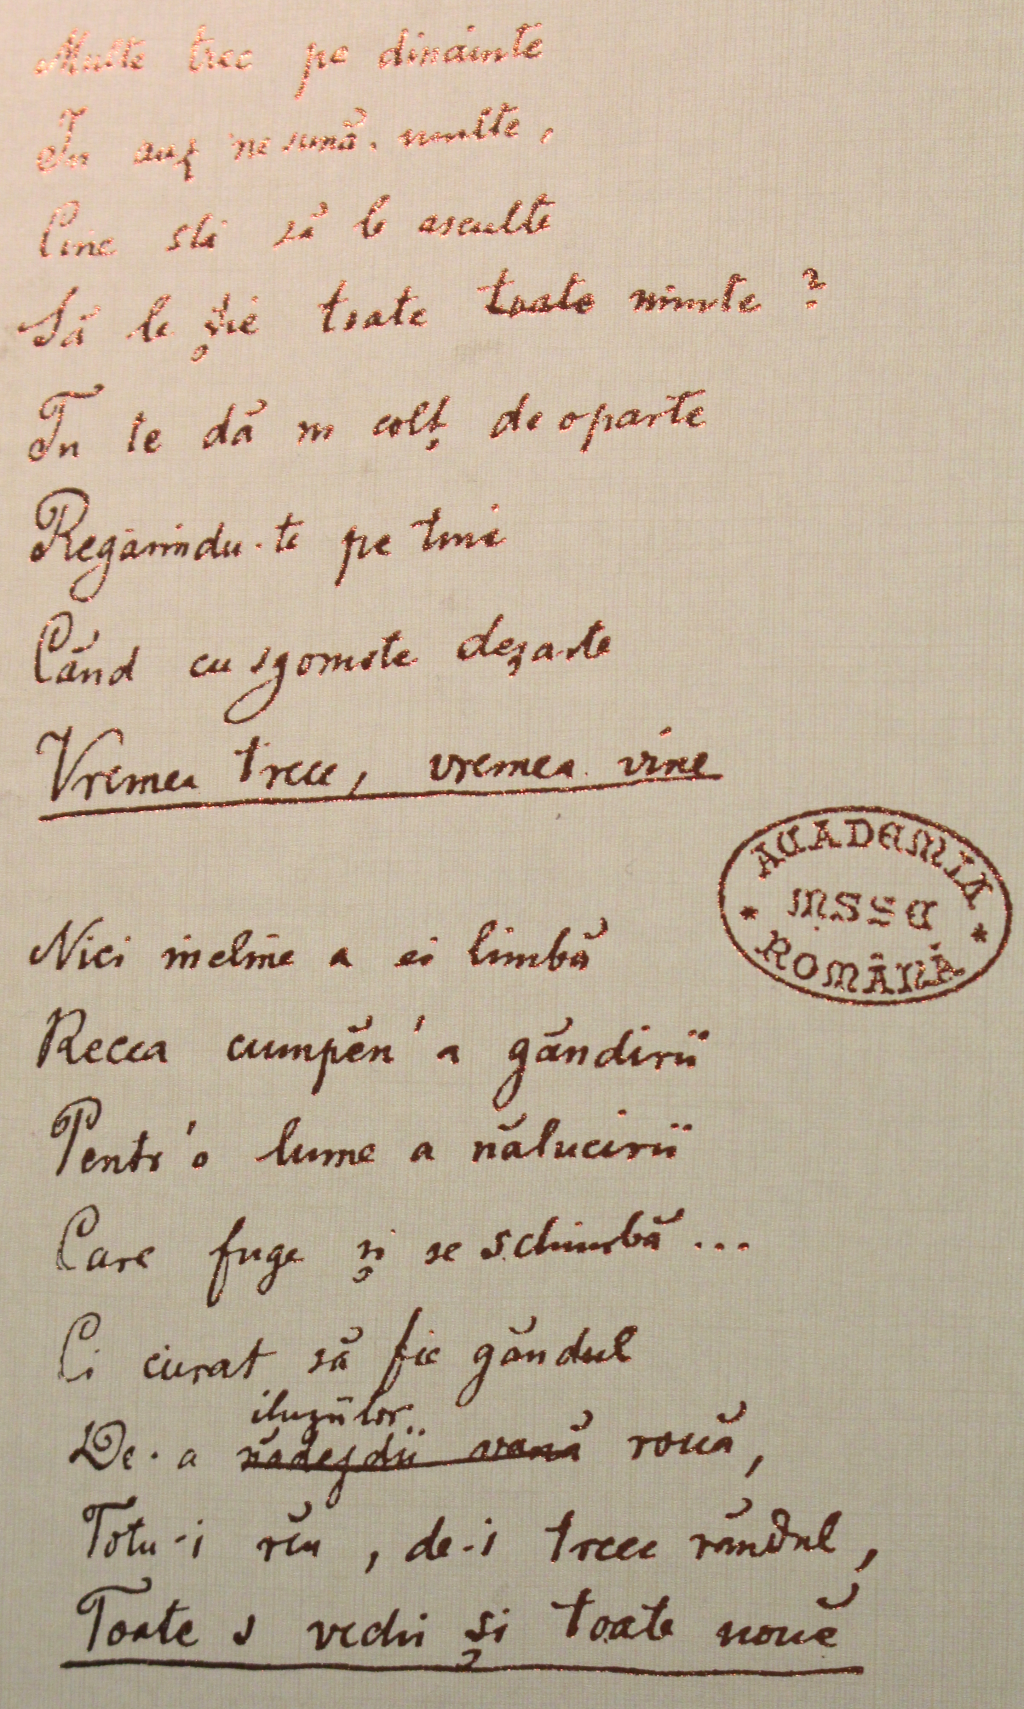 Multe trec pe dinainte
In auz ne sună multe,
Cine sti să le asculte
Să le ție toate toate minte ?
Tu te dă in colț de oparte
Regăsindu-te pe tine
Când cu sgomote deșarte
Vremea trece, vremea vine
ACADEMIA
MSSE
ROMÂNĂ
Nici incline a ei limbă
Recea cumpĕn' a găndirii
Pentr'o lume a nălucirii
Care fuge și se schimbă ...
Ci curat să fie găndul
iluziilor
De-a nădejdii vană rouă,
Totu-i rĕu, de-i trece răndul,
Toate s vechi și toate nouĕ